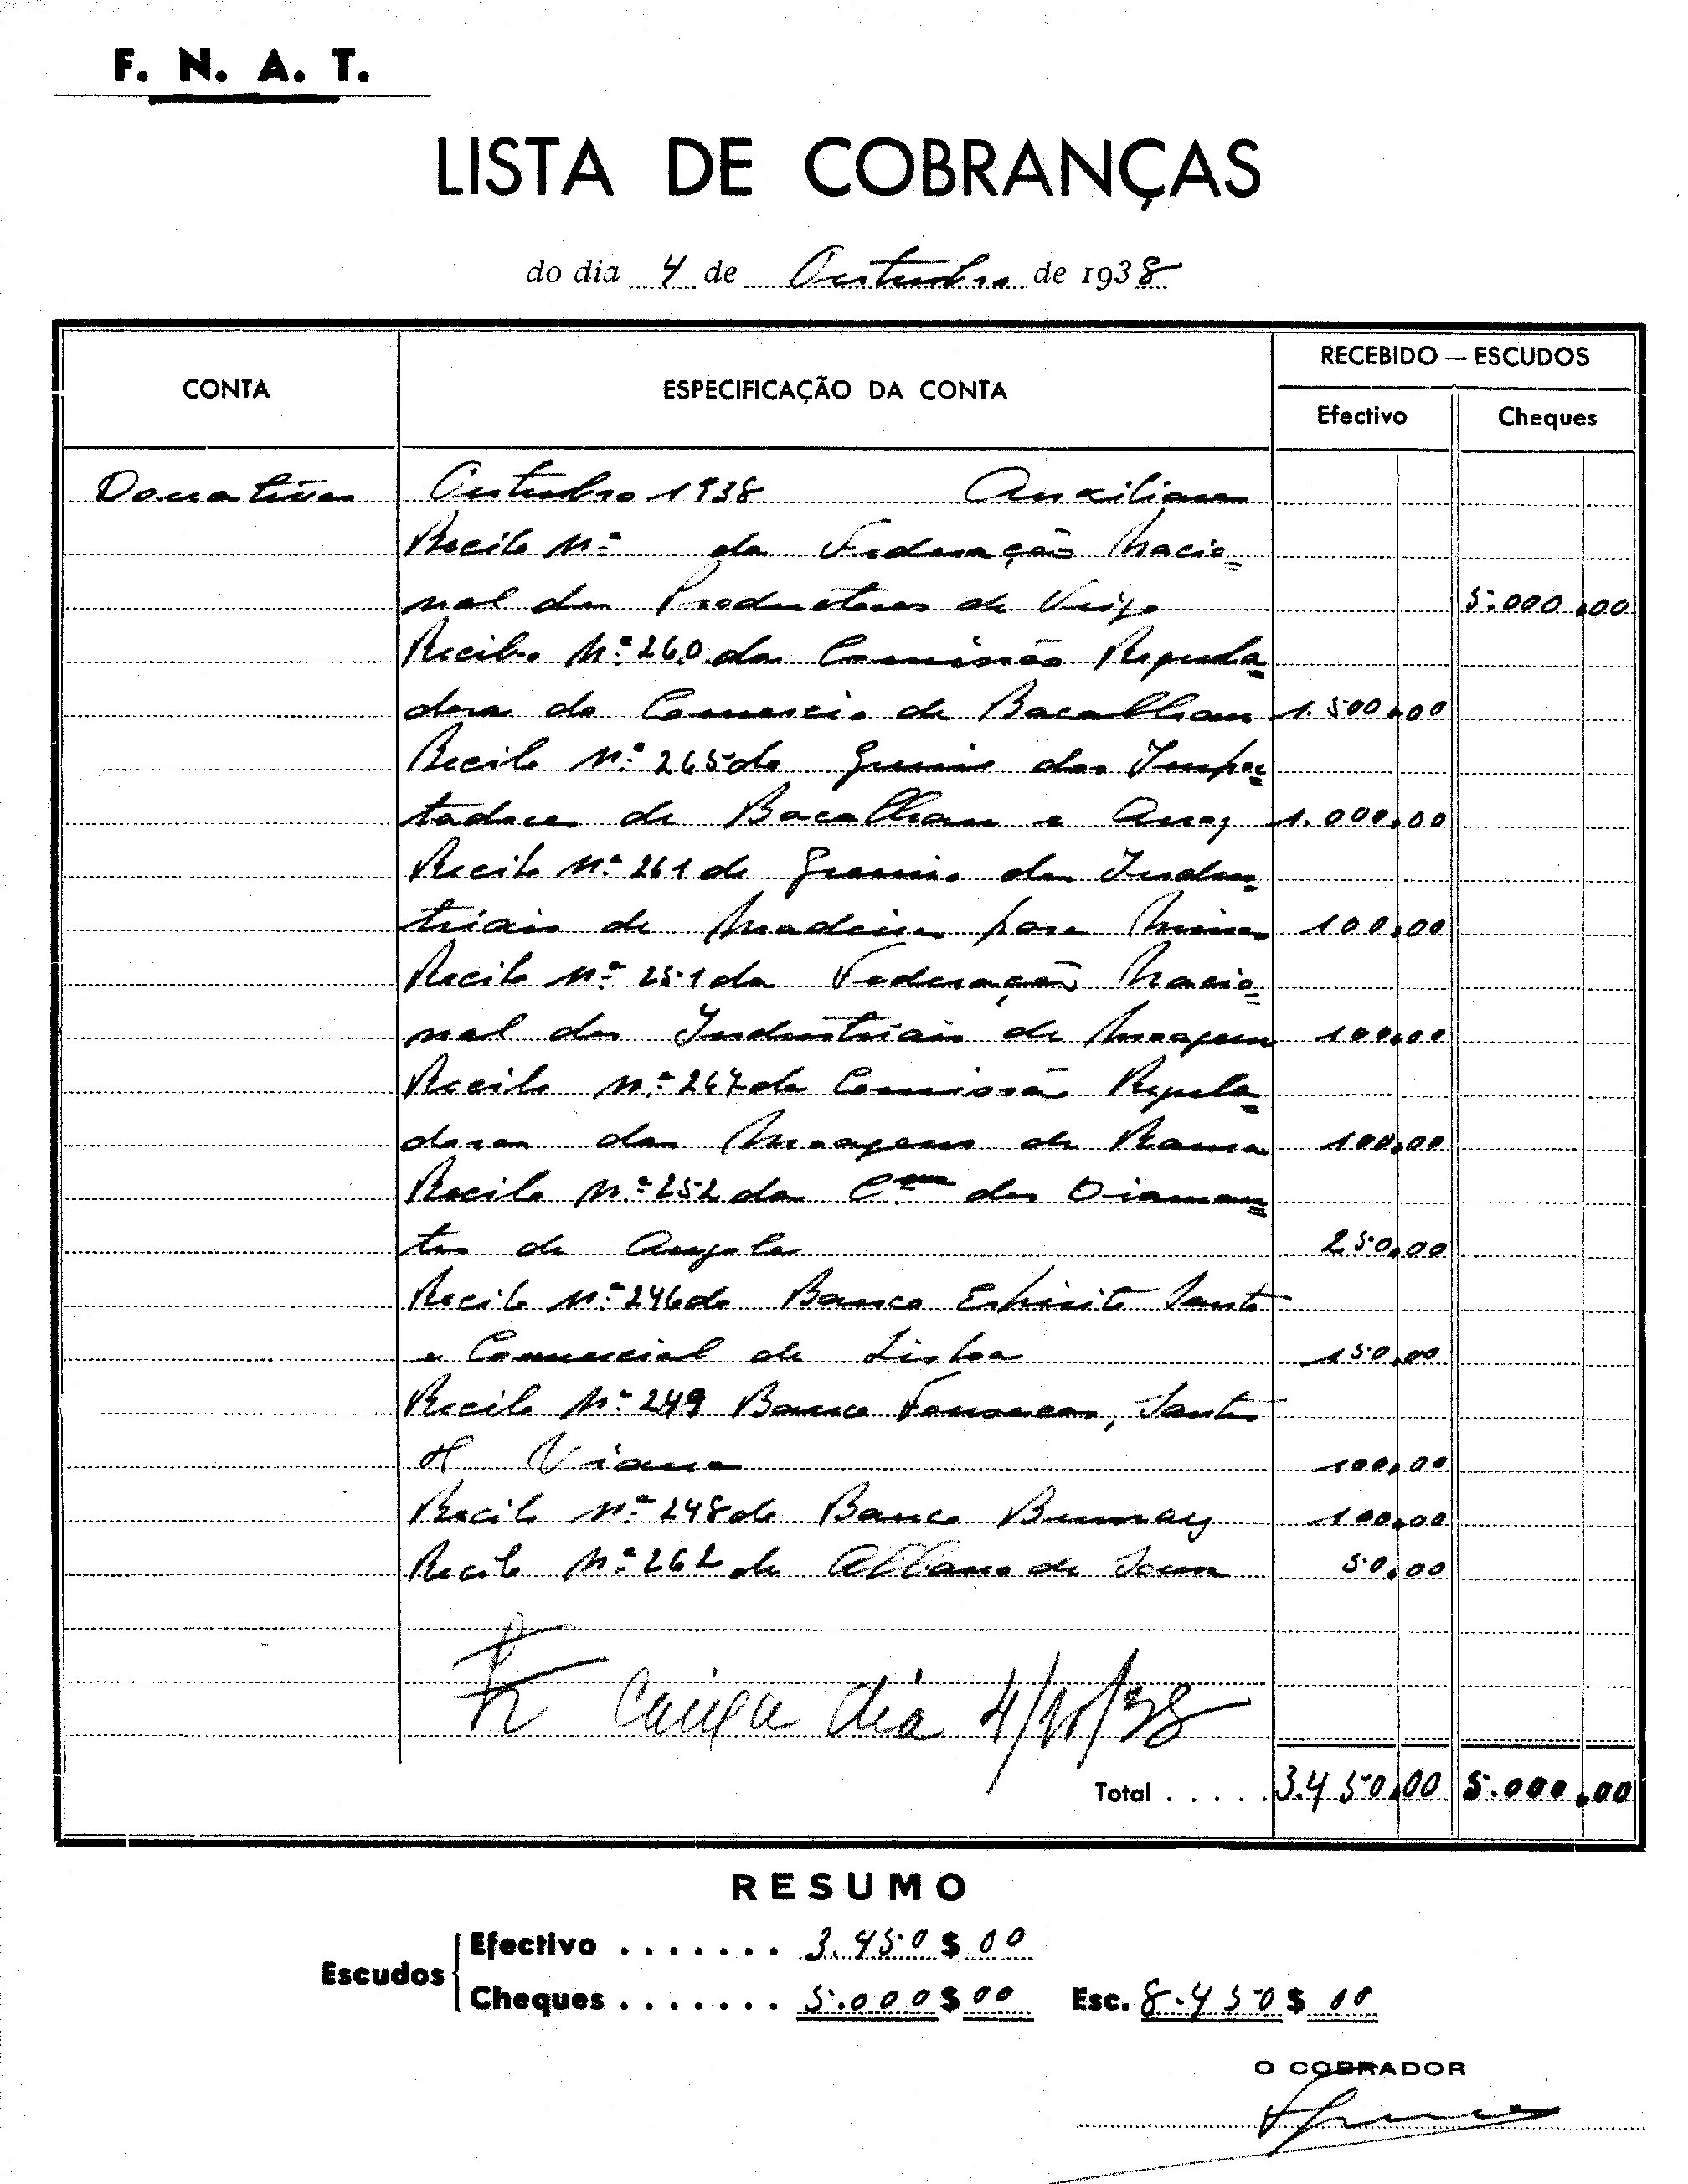 F. N. A. T.
LISTA DE COBRANÇAS
do dia 4 de Outubro de 1938
CONTA
ESPECIFICAÇÃO DA CONTA
RECEBIDO — ESCUDOS
Efectivo
Cheques
Donativos Outubro 1938 Auxiliares
Recibo Nº da Federação Nacio=
nal dos Productores de Trigo 5.000,00
Recibo Nº 260 da Comissão Regula=
dora do Comercio de Bacalhau 1.500,00
Recibo Nº 265 do Gremio dos Impor=
tadores de Bacalhau e Arroz 1.000,00
Recibo Nº 261 do Gremio dos Indus=
triais de Madeiras para Minas 100,00
Recibo Nº 251 da Federação Nacio=
nal dos Industriais de Moagem 100,00
Recibo Nº 267 da Comissão Regula=
doras das Moagens de Ramas 100,00
Recibo Nº 252 da Cª dos Diaman=
tes de Angola 250,00
Recibo Nº 246 do Banco Espirito Santo
e Comercial de Lisboa 150,00
Recibo Nº 249 Banco Fonsecas, Santos
& Viana 100,00
Recibo Nº 248 do Banco Burnay 100,00
Recibo Nº 262 de Albano de Sousa 50,00
Caixa dia 4/10/38
Total . . . . . 3.450,00 5.000,00
RESUMO
Escudos
Efectivo . . . . . . . 3.450$00
Cheques . . . . . . . 5.000$00 Esc. 8.450$00
O COBRADOR